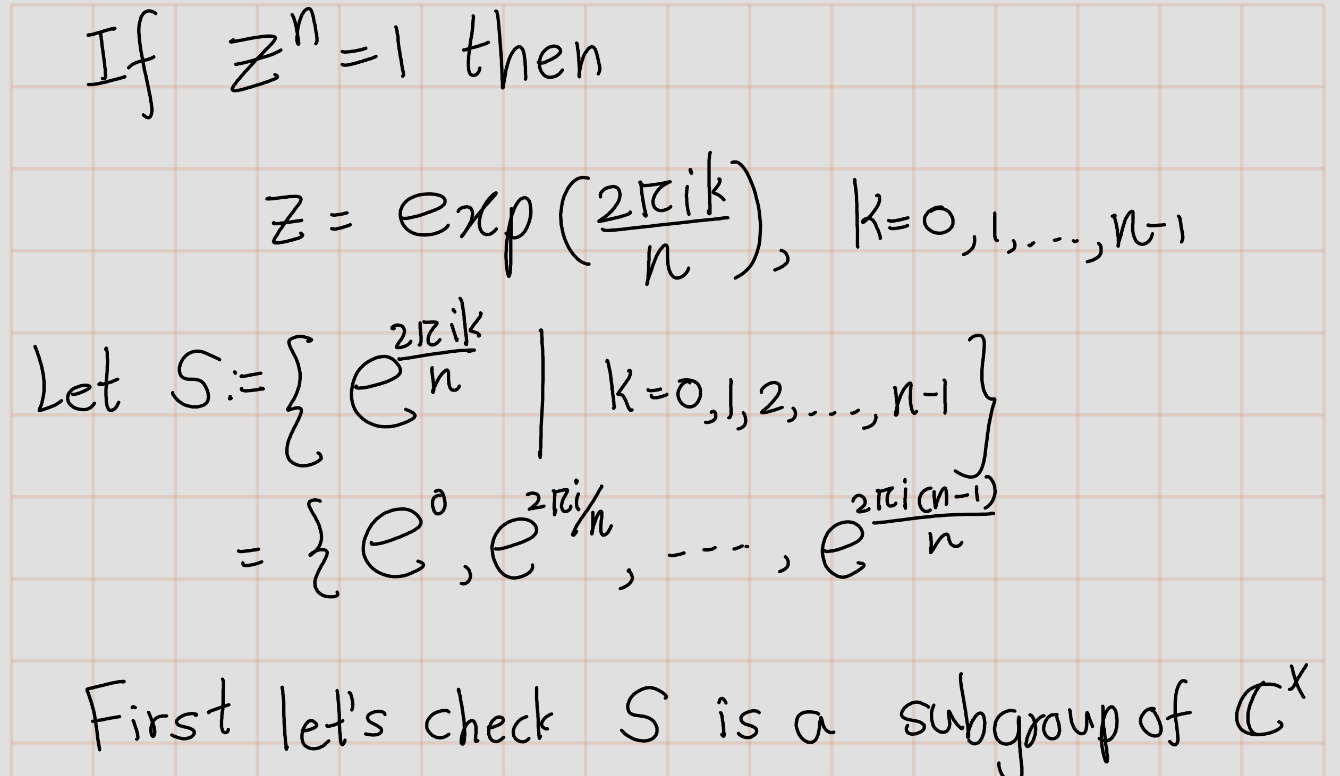 If zⁿ = 1 then
z = exp(2πik/n), k=0,1,...,n-1
Let S := { e^(2πik/n) | k=0,1,2,...,n-1 }
= { e⁰, e^(2πi/n), ---, e^(2πi(n-1)/n)
First let's check S is a subgroup of ℂˣ